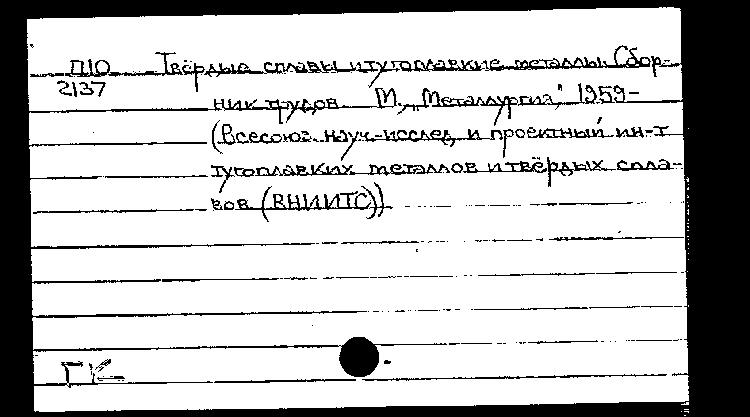 П10 Твёрдые сплавы и тугоплавкие металлы. Сбор-
2137
ник трудов. М., „Металлургия", 1959-
(Всесоюз. науч.-исслед. и проектный ин-т
тугоплавких металлов и твёрдых спла-
вов (ВНИИТС)).
ГК